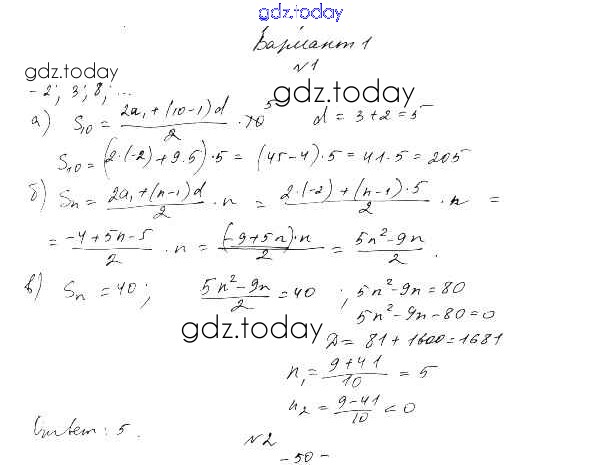 gdz.today
Вариант 1
№1
gdz.today
-2; 3; 8; ...
gdz.today
а) S₁₀ = (2a₁ + (10-1)d)/2 · 10 5 d = 3+2 = 5
S₁₀ = (2·(-2) + 9·5)·5 = (45-4)·5 = 41·5 = 205
б) Sₙ = (2a₁ + (n-1)d)/2 · n = (2·(-2) + (n-1)·5)/2 · n =
= (-4+5n-5)/2 · n = ((-9+5n)·n)/2 = (5n²-9n)/2 .
в) Sₙ = 40; (5n²-9n)/2 = 40 ; 5n²-9n = 80
5n²-9n-80=0
gdz.today
D = 81 + 1600 = 1681
n₁ = (9+41)/10 = 5
n₂ = (9-41)/10 < 0
Ответ: 5.
№2
-50-